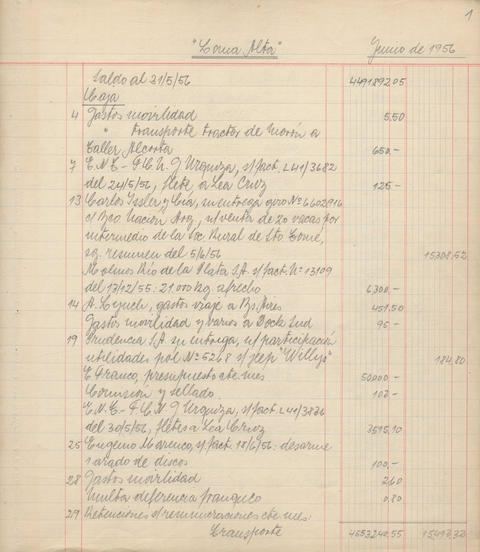 1
"Loma Alta" Junio de 1956
Saldo al 31/5/56 4491892.05
Caja
4 Gastos movilidad 5,50
" transporte tractor de Morón a
Taller Alcorta 650.-
7 E.N.T.- F.C.N. G Urquiza, s/fact. L41/3682
del 24/5/56, flete a Lea Cruz 125.-
13 Carlos Issler y Cía, su entrega giro No 6602916
c/ Bco Nación Arg, n/venta de 20 vacas por
intermedio de la Soc. Rural de Sto Tomé,
sg. resumen del 5/6/56 15308.52
Molinos Río de la Plata S.A. s/fact. No 13109
del 17/12/55: 21.000 kg. afrecho 6300.-
14 A. Lynch, gastos viaje a Bs. Aires 451.50
Gastos movilidad y varios a Dock Sud 95.-
19 Prudencia S.A. su entrega, n/participación
utilidades pol. No 5268 s/jeep "Willys" 184.80
E Franco, presupuesto cte mes 50000.-
Comisión y sellado
E.N.T.- F.C.N. G Urquiza, s/fact L41/3836
del 30/5/56, fletes a Lea Cruz
25 Eugenio Marenco, s/fact. 18/6/56: desarme
1 arado de discos 100.-
28 Gastos movilidad 2.60
Multa diferencia franqueo 0.80
29 Retenciones s/remuneraciones cte mes
Transporte 4553240.55